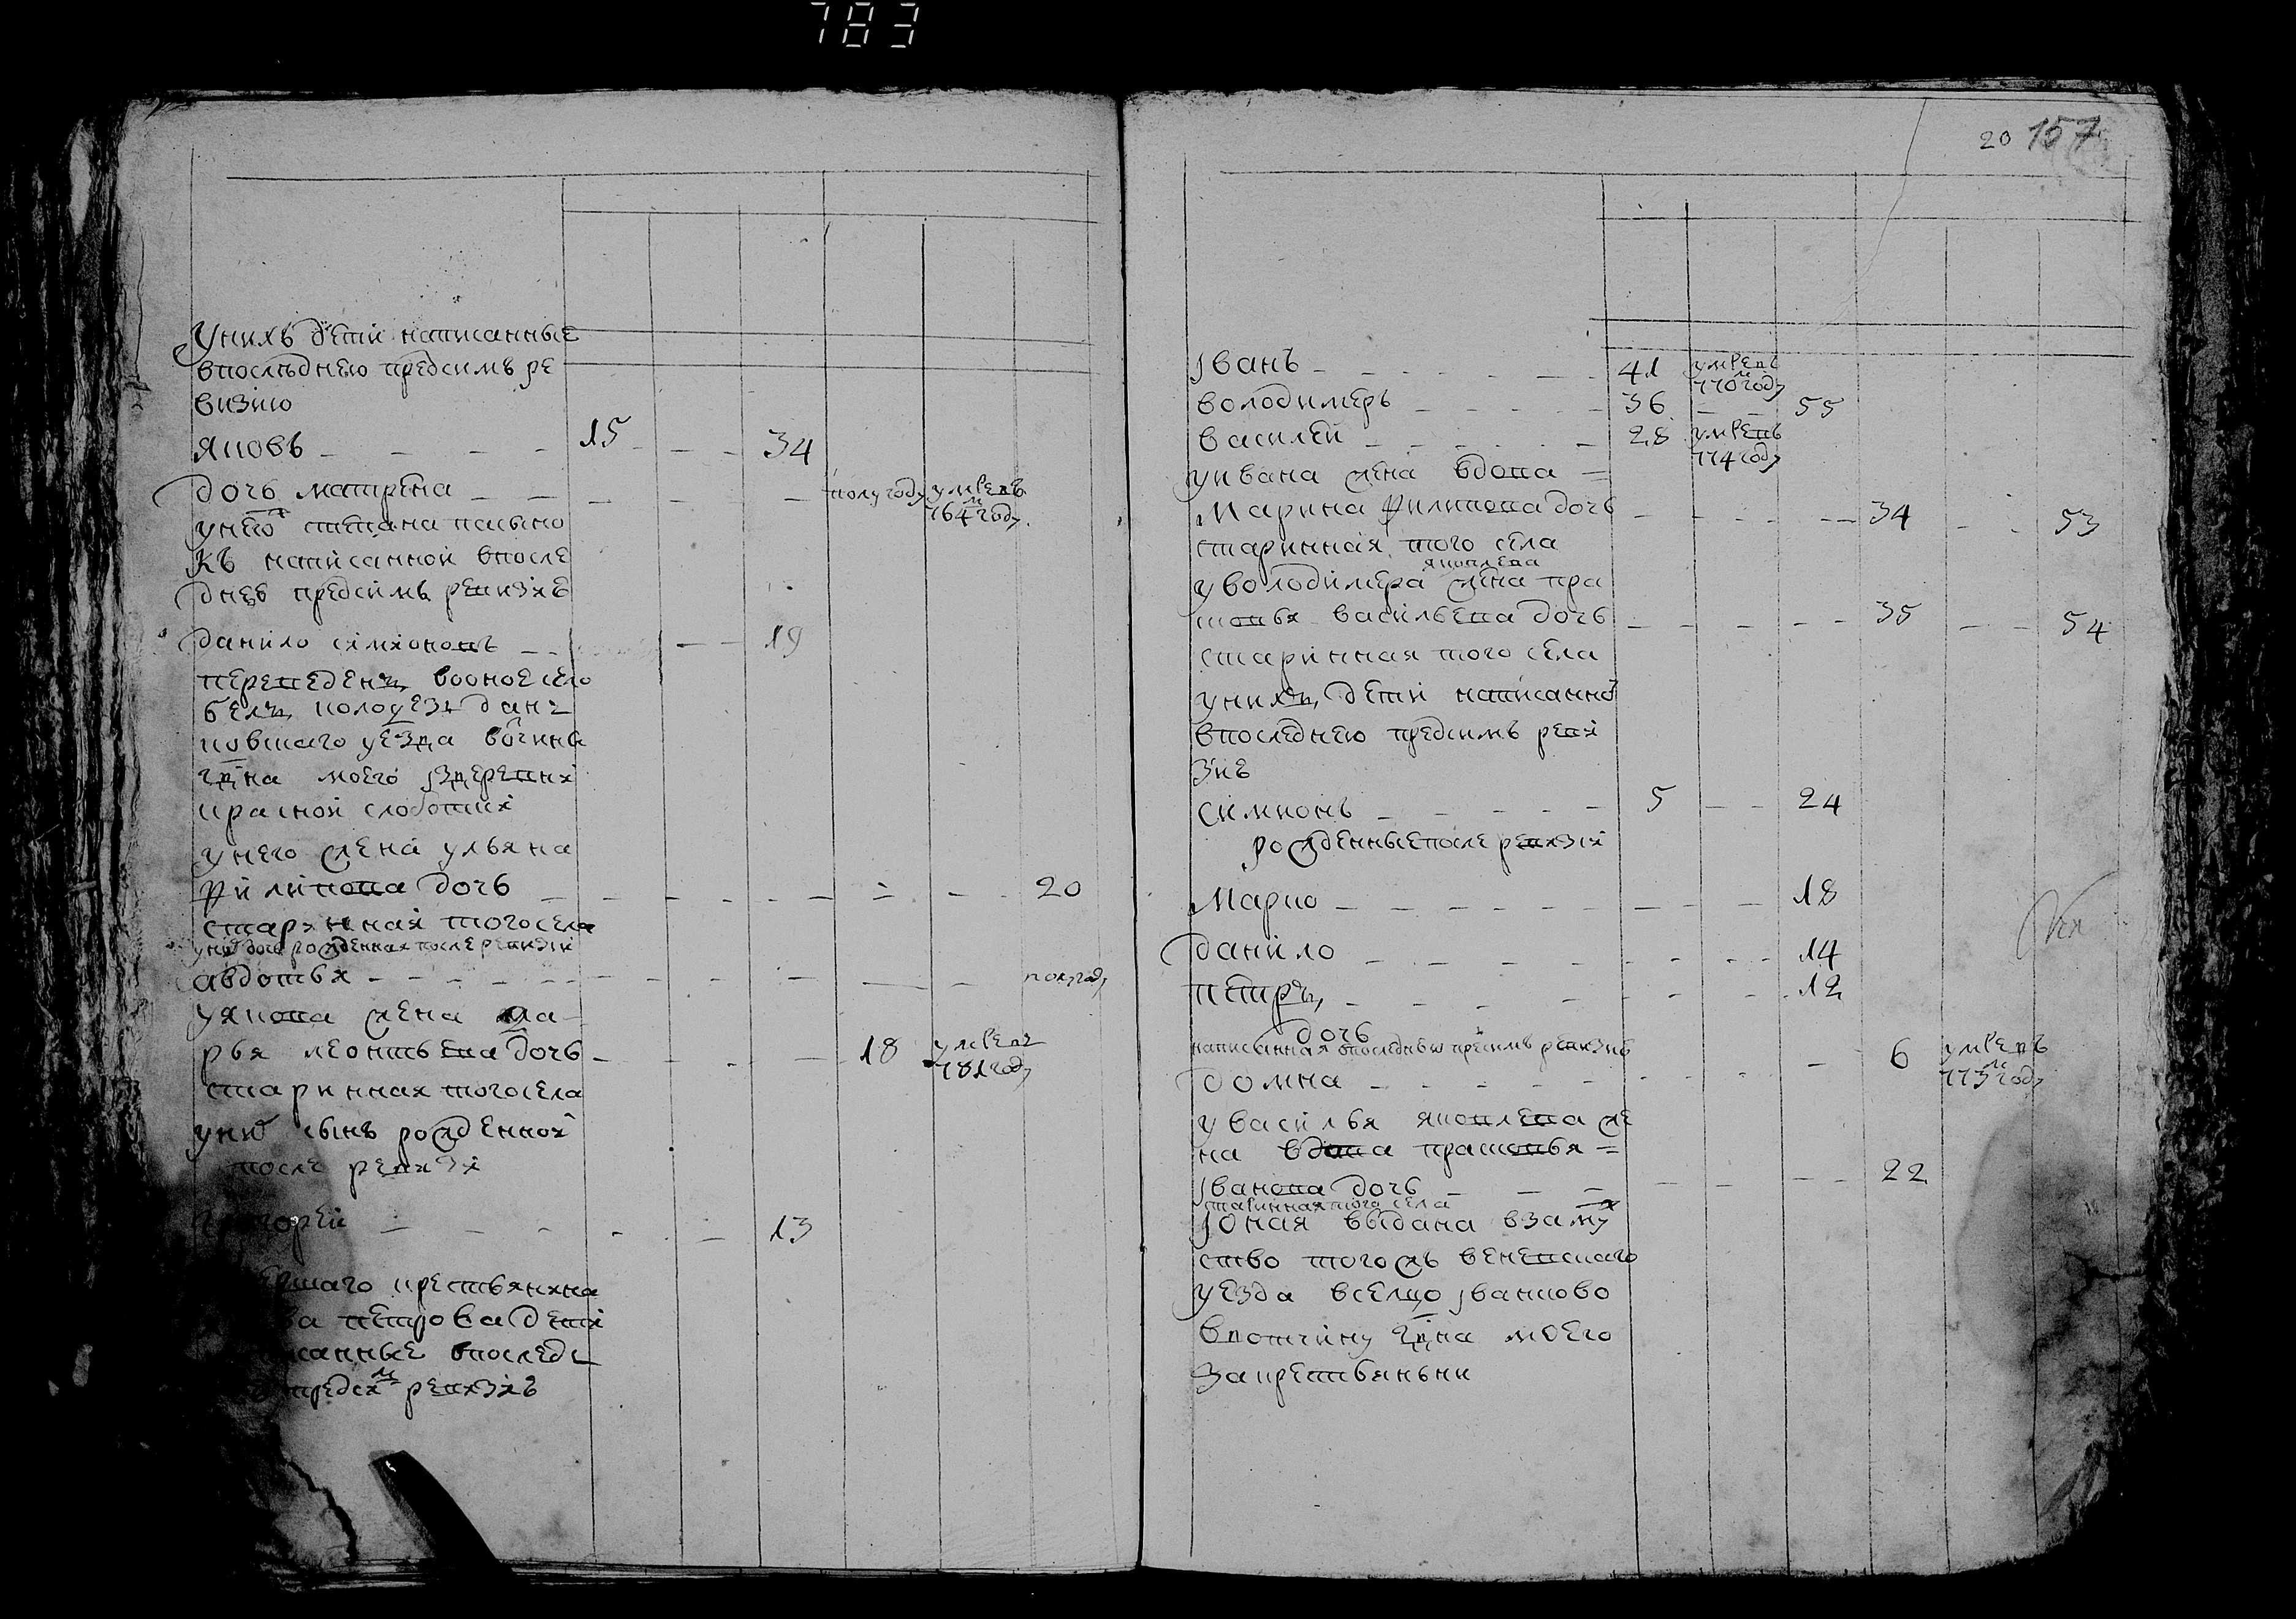 783
унихъ дети написанные
впоследнею предсимъ ре
визию
яковъ – – – – 15 – – – 34
дочь матрена – – – – – полугоду умрела
764м году
унего степана племяно
къ написанной впосле
днев предсимъ ревизиѣ
данило симионовъ – – – 19
переведенъ вооное село
белъ колодезь данъ
ковшаго уезда вочина
гдна моего издеревни
красной слоботки
унего жена ульяна
филипова дочь – – – – – – – – 20
старинная тогосела
унихъ дочь рожденная после ревизии
авдотья – – – – – – – – полугоду
уякова жена да
рья леонтьева дочь – – – – 18 умрела
781 году
старинная тогосела
унихъ сынъ рожденной
после ревизи
григорей – – – – – – 13
крестьянина
петрова дети
впоследъ
предсимъ ревизиѣ
20 157
иванъ – – – – – – 41 умрелъ
770м году
володимеръ – – – – – 36 – – 55
василей – – – – – – 28 умрелъ
774 году
уивана жена вдова =
марина филипова дочь – – – – – 34 – – 53
старинная того села
яковлева
уволодимера жена пра
сковья васильева дочь – – – – – 35 – – 54
старинная того села
унихъ дети написанной
впоследнею предсимъ реви
зиѣ
симионъ – – – – – 5 – – 24
рожденныепосле ревизии
марко – – – – – – – – 18
данило – – – – – – – – 14
петръ – – – – – – – 12
дочь
написанная впоследнею предсимъ ревизиѣ
домна – – – – – – – – – 6 умрела
773м году
увасилья яковлева же
на вдова прасковья =
иванова дочь – – – – – – – 22
стариннаятого села
ионая выдана взамуж
ство того жъ веневскаго
уезда всельцо иванково
ввотчину гдна моего
закрестьянина